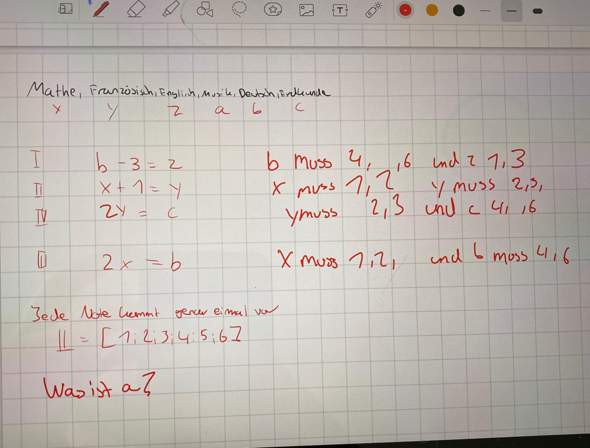 Mathe, Französisch, English, Musik, Deutsch, Erdkunde
x y z a b c
I b - 3 = z b muss 4, ,6 und z 1,3
II x + 1 = y x muss 1,2 y muss 2,3,
IV 2y = c y muss 2,3 und c 4, ,6
III 2x = b x muss 1,2, und b muss 4,6
Jede Note kommt genau einmal vor
𝕃 = [1; 2; 3; 4; 5; 6]
Was ist a?